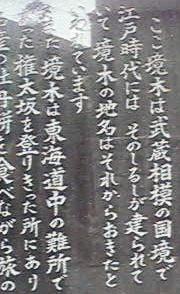 ここ境木は武蔵相模の国境で
江戸時代には そのしるしが建られて
て 境木の地名はそれからおきたと
われています
た 境木は東海道中の難所で
った権太坂を登りきった所にあり
の牡丹餅を食べながら旅の